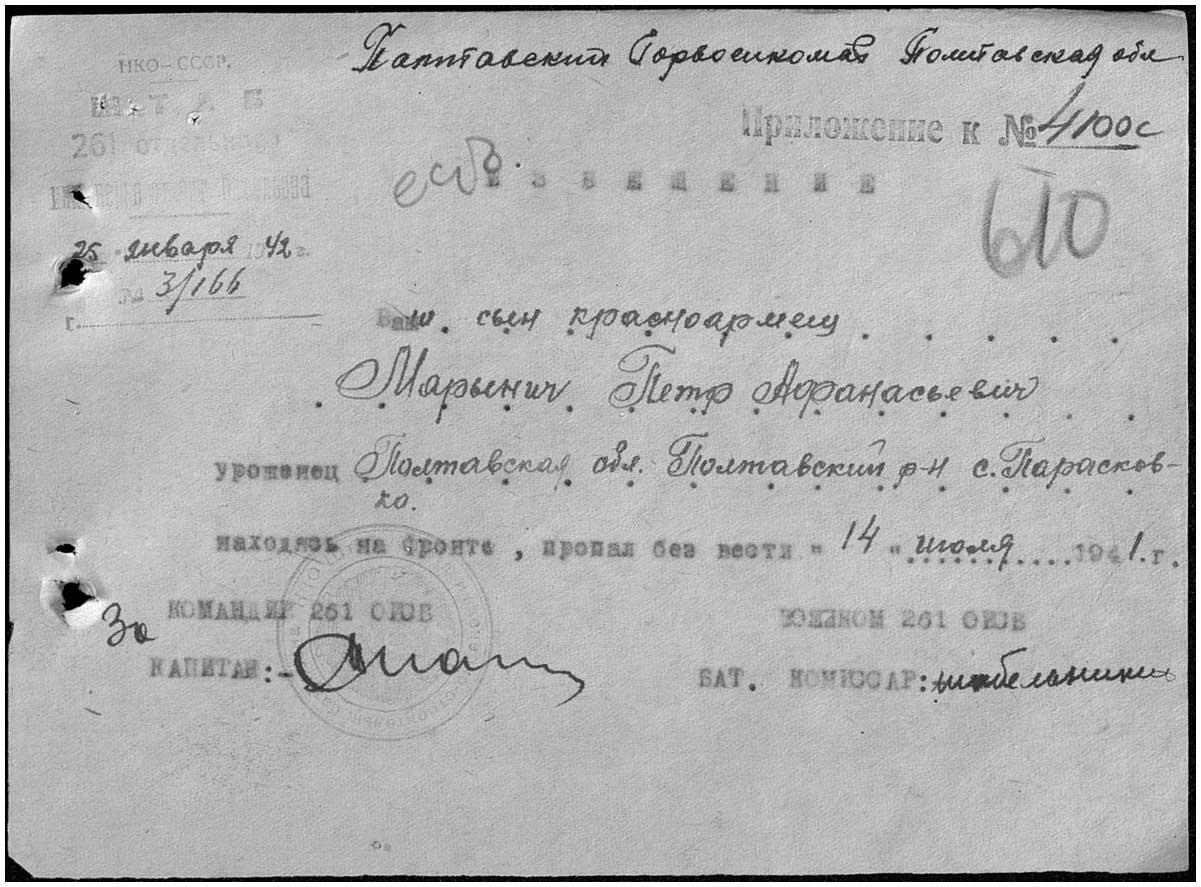 Палтавский Горвоенкомат Полтавская обл
НКО-СССР.
ШТАБ
261
Приложение к № 4100с
ИЗВЕЩЕНИЕ
610
25 января 1942 г.
№ 3/166
г.
Ваш сын красноармеец
Марынич Петр Афанасьевич
уроженец Полтавская обл. Полтавский р-н с. Парасков-
ко.
находясь на фронте, пропал без вести "14" июля 1941.г.
За КОМАНДИР 261 ОИСБ
ВОЕНКОМ 261 ОИСБ
КАПИТАН:-
БАТ. КОМИССАР: